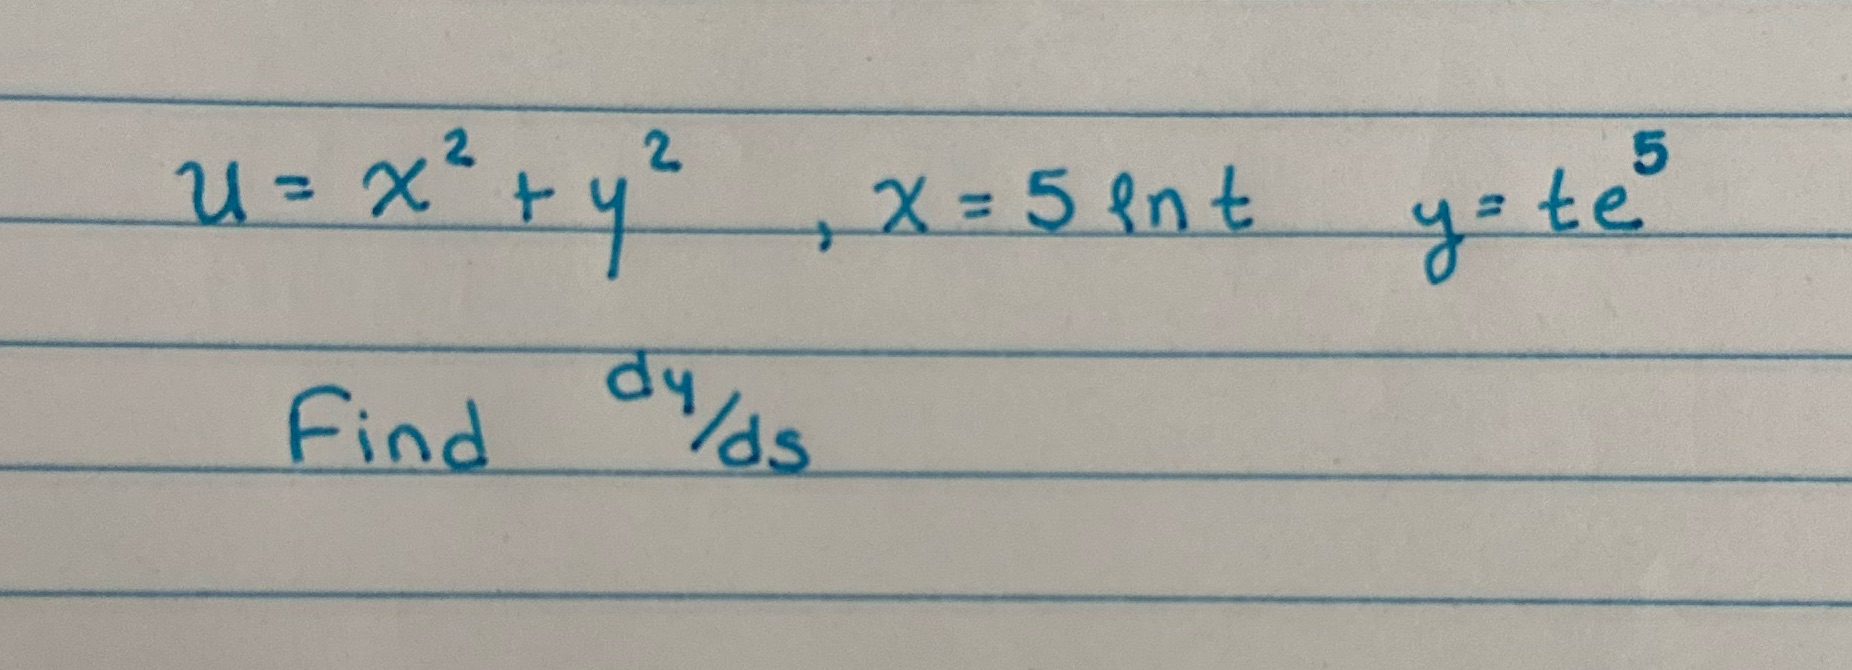 u = x² + y² , x = 5 ln t y = te⁵
Find dy/ds